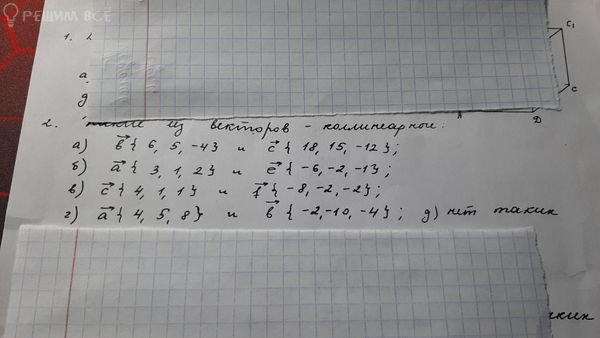 РЕШИМ ВСЁ
1.
C₁
а
д
C
D
2. какие из векторов - коллинеарные:
а) b⃗ { 6, 5, -4} и c⃗ { 18, 15, -12};
б) a⃗ { 3, 1, 2} и e⃗ { -6, -2, -1};
в) c⃗ { 4, 1, 1} и f⃗ { -8, -2, -2};
г) a⃗ { 4, 5, 8} и b⃗ { -2, -10, -4}; д) нет таких